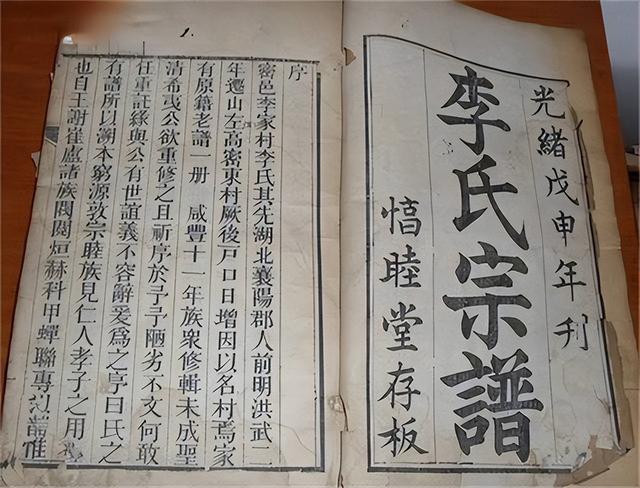 光緒戊申年刋
李氏宗譜
睦堂存板
序
密邑李家村李氏其先湖北襄陽郡人前明洪武二
年遷山左高密東村厥後戸口日增因以名村焉家
有原籍老譜一册 咸豐十一年族衆修輯未成聖
清希夷公欲重修之且祈序於予予陋劣不文何敢
任重託緣與公有世誼義不容辭爰爲之序曰氏之
有譜所以溯本窮源敦宗睦族見仁人孝子之用
也自王謝崔盧諸族閥閱烜赫科甲蟬聯專惟